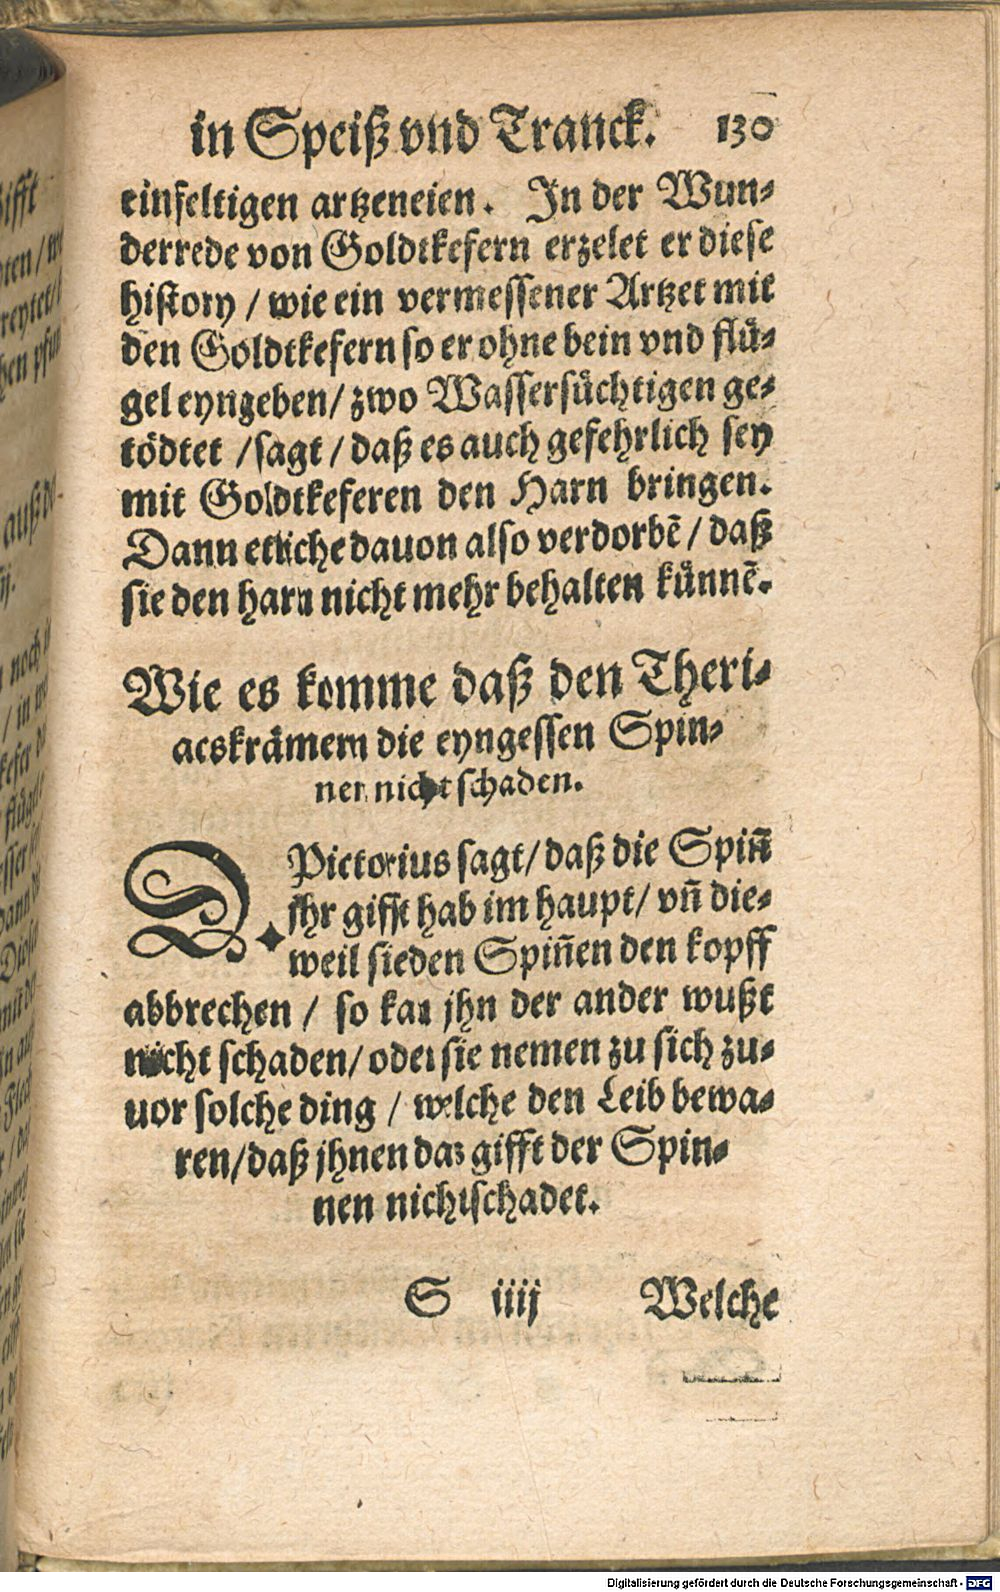 in Speiß vnd Tranck. 130
einfeltigen artzeneien. In der Wun-
derrede von Goldtkefern erzelet er diese
history / wie ein vermessener Artzet mit
den Goldtkefern so er ohne bein vnd flü-
gel eyngeben / zwo Wassersüchtigen ge-
tödtet / sagt / daß es auch gefehrlich sey
mit Goldtkeferen den Harn bringen.
Dann etliche dauon also verdorbẽ / daß
sie den harn nicht mehr behalten künnẽ.
Wie es komme daß den Theri-
acskrämern die eyngessen Spin-
nen nicht schaden.
D. Pictorius sagt / daß die Spiñ
jhr gifft hab im haupt / vñ die-
weil sie den Spiñen den kopff
abbrechen / so kan jhn der ander wußt
nicht schaden / oder sie nemen zu sich zu-
uor solche ding / welche den Leib bewa-
ren / daß jhnen das gifft der Spin-
nen nicht schadet.
S iiij Welche
Gifft
auß
noch
Digitalisierung gefördert durch die Deutsche Forschungsgemeinschaft - DFG